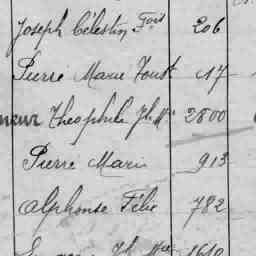 Joseph Célestin Fois 206
Pierre Marie Toust 17
neur Theophile Jh Mie 2800
Pierre Marie 913
Alphonse Félix 782
Jh Mie 1610